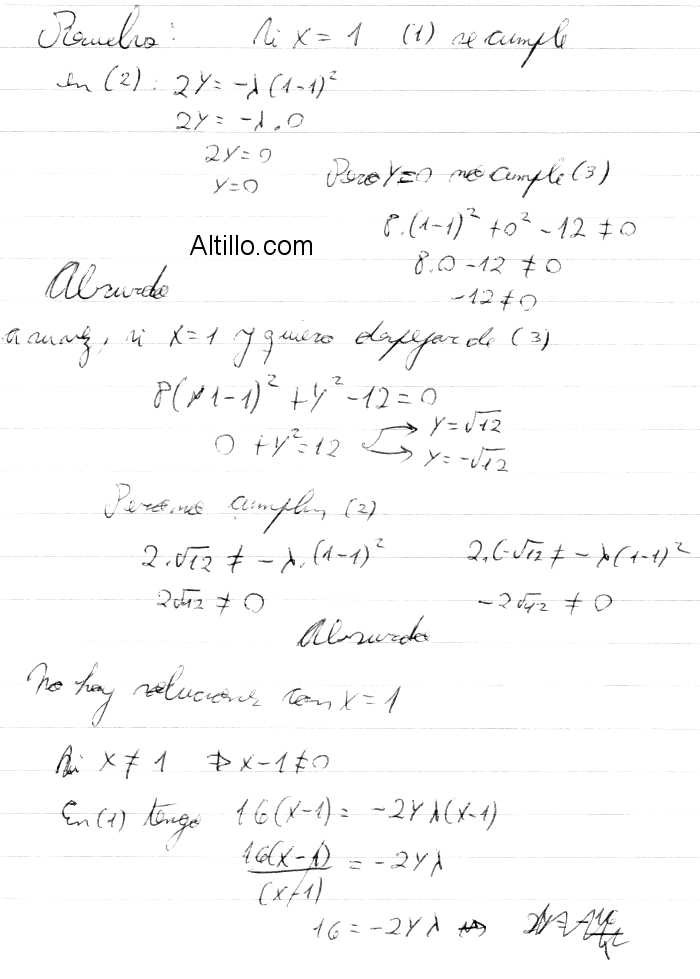 Resuelvo: Si x = 1 (1) se cumple
en (2): 2y = -λ(1-1)²
2y = -λ.0
2y = 0
y = 0 Pero y=0 no cumple (3)
8.(1-1)² + 0² - 12 ≠ 0
8.0 - 12 ≠ 0
-12 ≠ 0
Altillo.com
Absurdo
a su vez, si x=1 y quiero despejar de (3)
8(1-1)² + y² - 12 = 0
0 + y² = 12 y = √12
y = -√12
Pero no cumplen (2)
2.√12 ≠ -λ.(1-1)² 2.(-√12 ≠ -λ(1-1)²
2√12 ≠ 0 -2√12 ≠ 0
Absurdo
No hay soluciones con x = 1
Si x ≠ 1 ⇒ x-1 ≠ 0
En (1) tengo 16(x-1) = -2yλ(x-1)
16(x-1)/(x-1) = -2yλ
16 = -2yλ ⇔